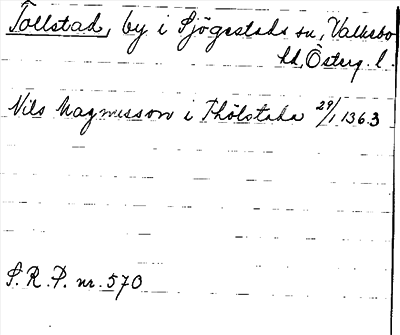 Tollstad, by i Sjögestads sn, Valkebo
hd, Österg. l.
Nils Magnusson i Thólstaha 29/1 1363
S. R. P. nr. 570